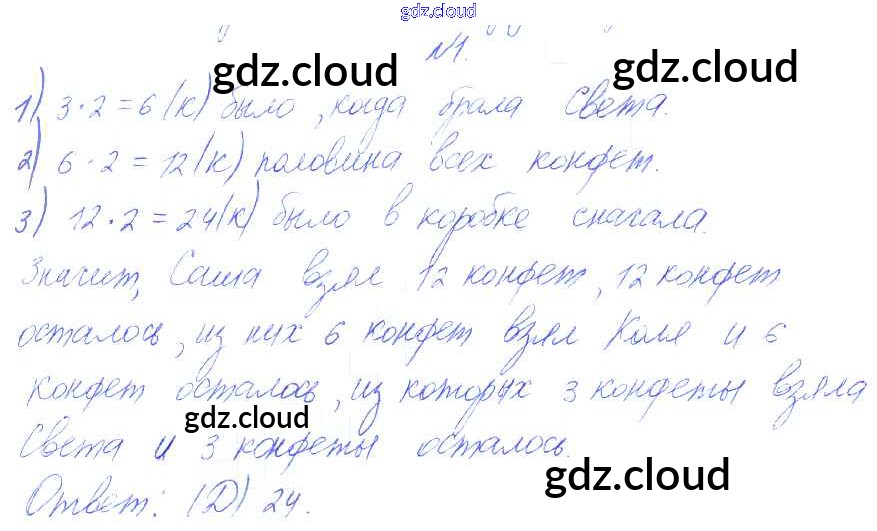 gdz.cloud
№1.
gdz.cloud gdz.cloud
1) 3·2=6 (к) было, когда брала Света.
2) 6·2=12 (к) половина всех конфет.
3) 12·2=24 (к) было в коробке сначала.
Значит, Саша взял 12 конфет, 12 конфет
осталось, из них 6 конфет взял Коля и 6
конфет осталось, из которых 3 конфеты взяла
gdz.cloud
Света и 3 конфеты осталось.
gdz.cloud
Ответ: (D) 24.